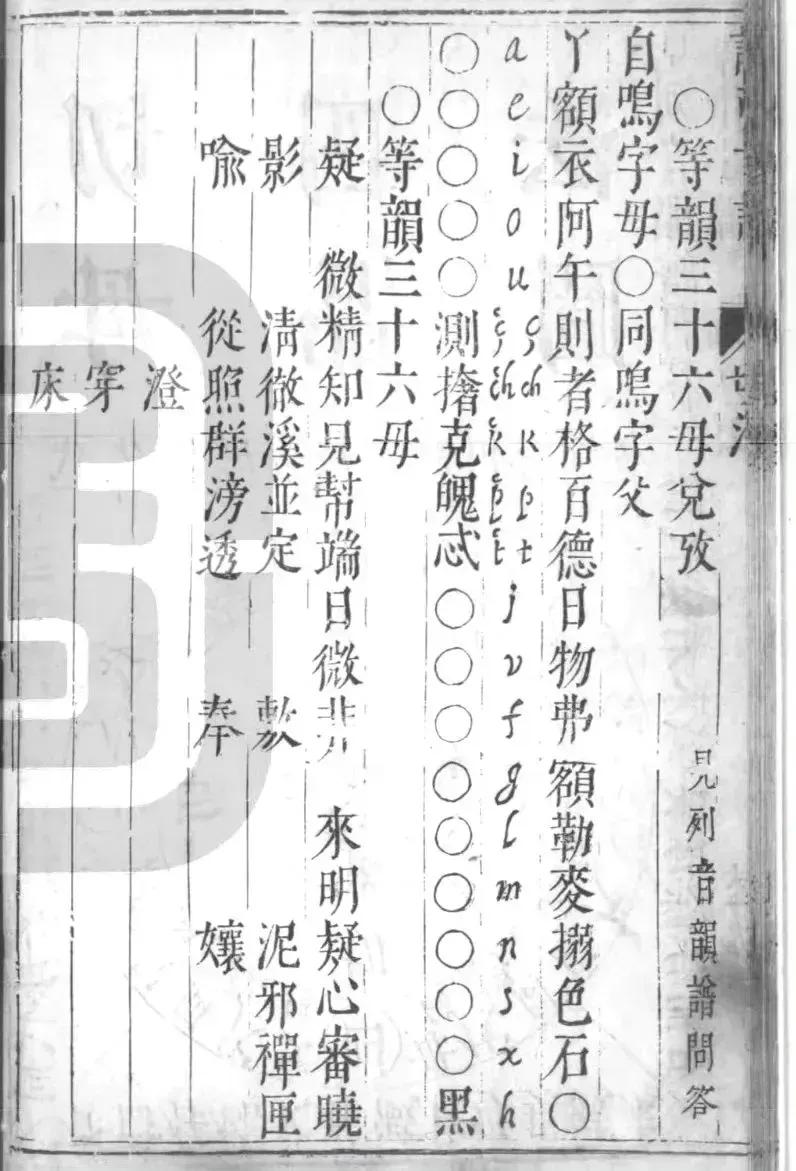 ○等韻三十六毋兌攷
見列音韻譜問答
自鳴字毋○同鳴字父
丫額衣阿午則者格百德日物弗額勒麥搦色石○
a e i o u ç ch K p t j v f g l m n s x h
ç̔ c̔h K̔ p̔ t̔
○○○○○測撦克魄忒○○○○○○○○○黑
○等韻三十六毋
疑 微精知見幫端日微非 來明疑心審曉
影 清徹溪並定 敷 泥邪禪匣
喩 從照群滂透 奉 孃
澄
穿
床